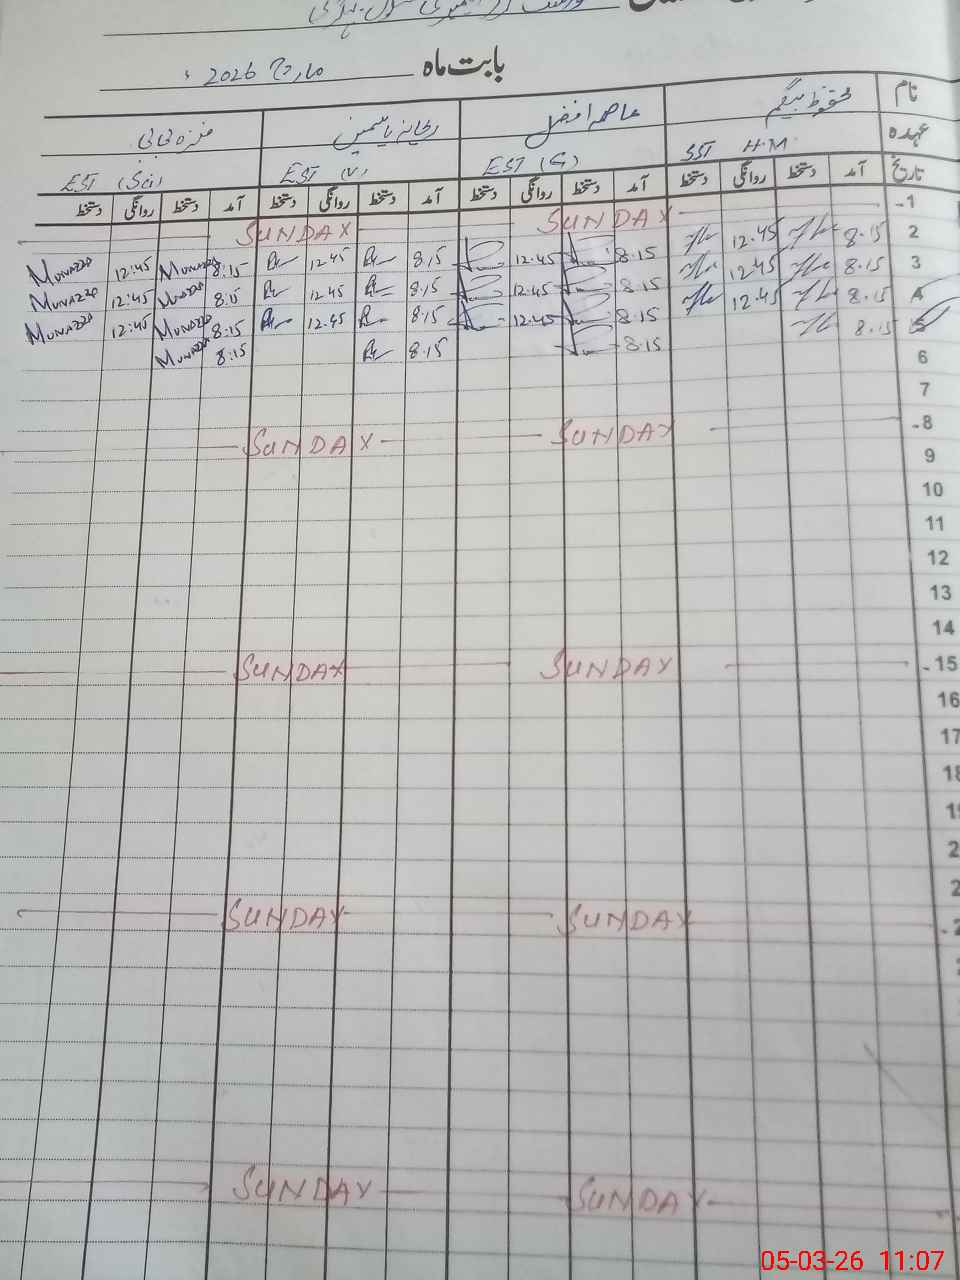 بابت ماہ مارچ 2026
نام محفوظ بیگم عاصمہ افضل ریحانہ یاسمین منزہ
عہدہ SST H.M. EST (G) EST (V) EST (Sci)
تاریخ آمد دستخط روانگی دستخط آمد دستخط روانگی دستخط آمد دستخط روانگی دستخط آمد دستخط روانگی دستخط
1 SUNDAY SUNDAY
2 8.15 12.45 8.15 12.45 8.15 12.45 8:15 Munazza 12:45 Munazza
3 8.15 12.45 8.15 12.45 8.15 12.45 8:15 Munazza 12:45 Munazza
4 8.15 12.45 8.15 12.45 8.15 12.45 8:15 Munazza 12:45 Munazza
5 8.15 8.15 8.15 8:15 Munazza
6
7
8 SUNDAY SUNDAY
9
10
11
12
13
14
15 SUNDAY SUNDAY
16
17
SUNDAY SUNDAY
SUNDAY SUNDAY
05-03-26 11:07